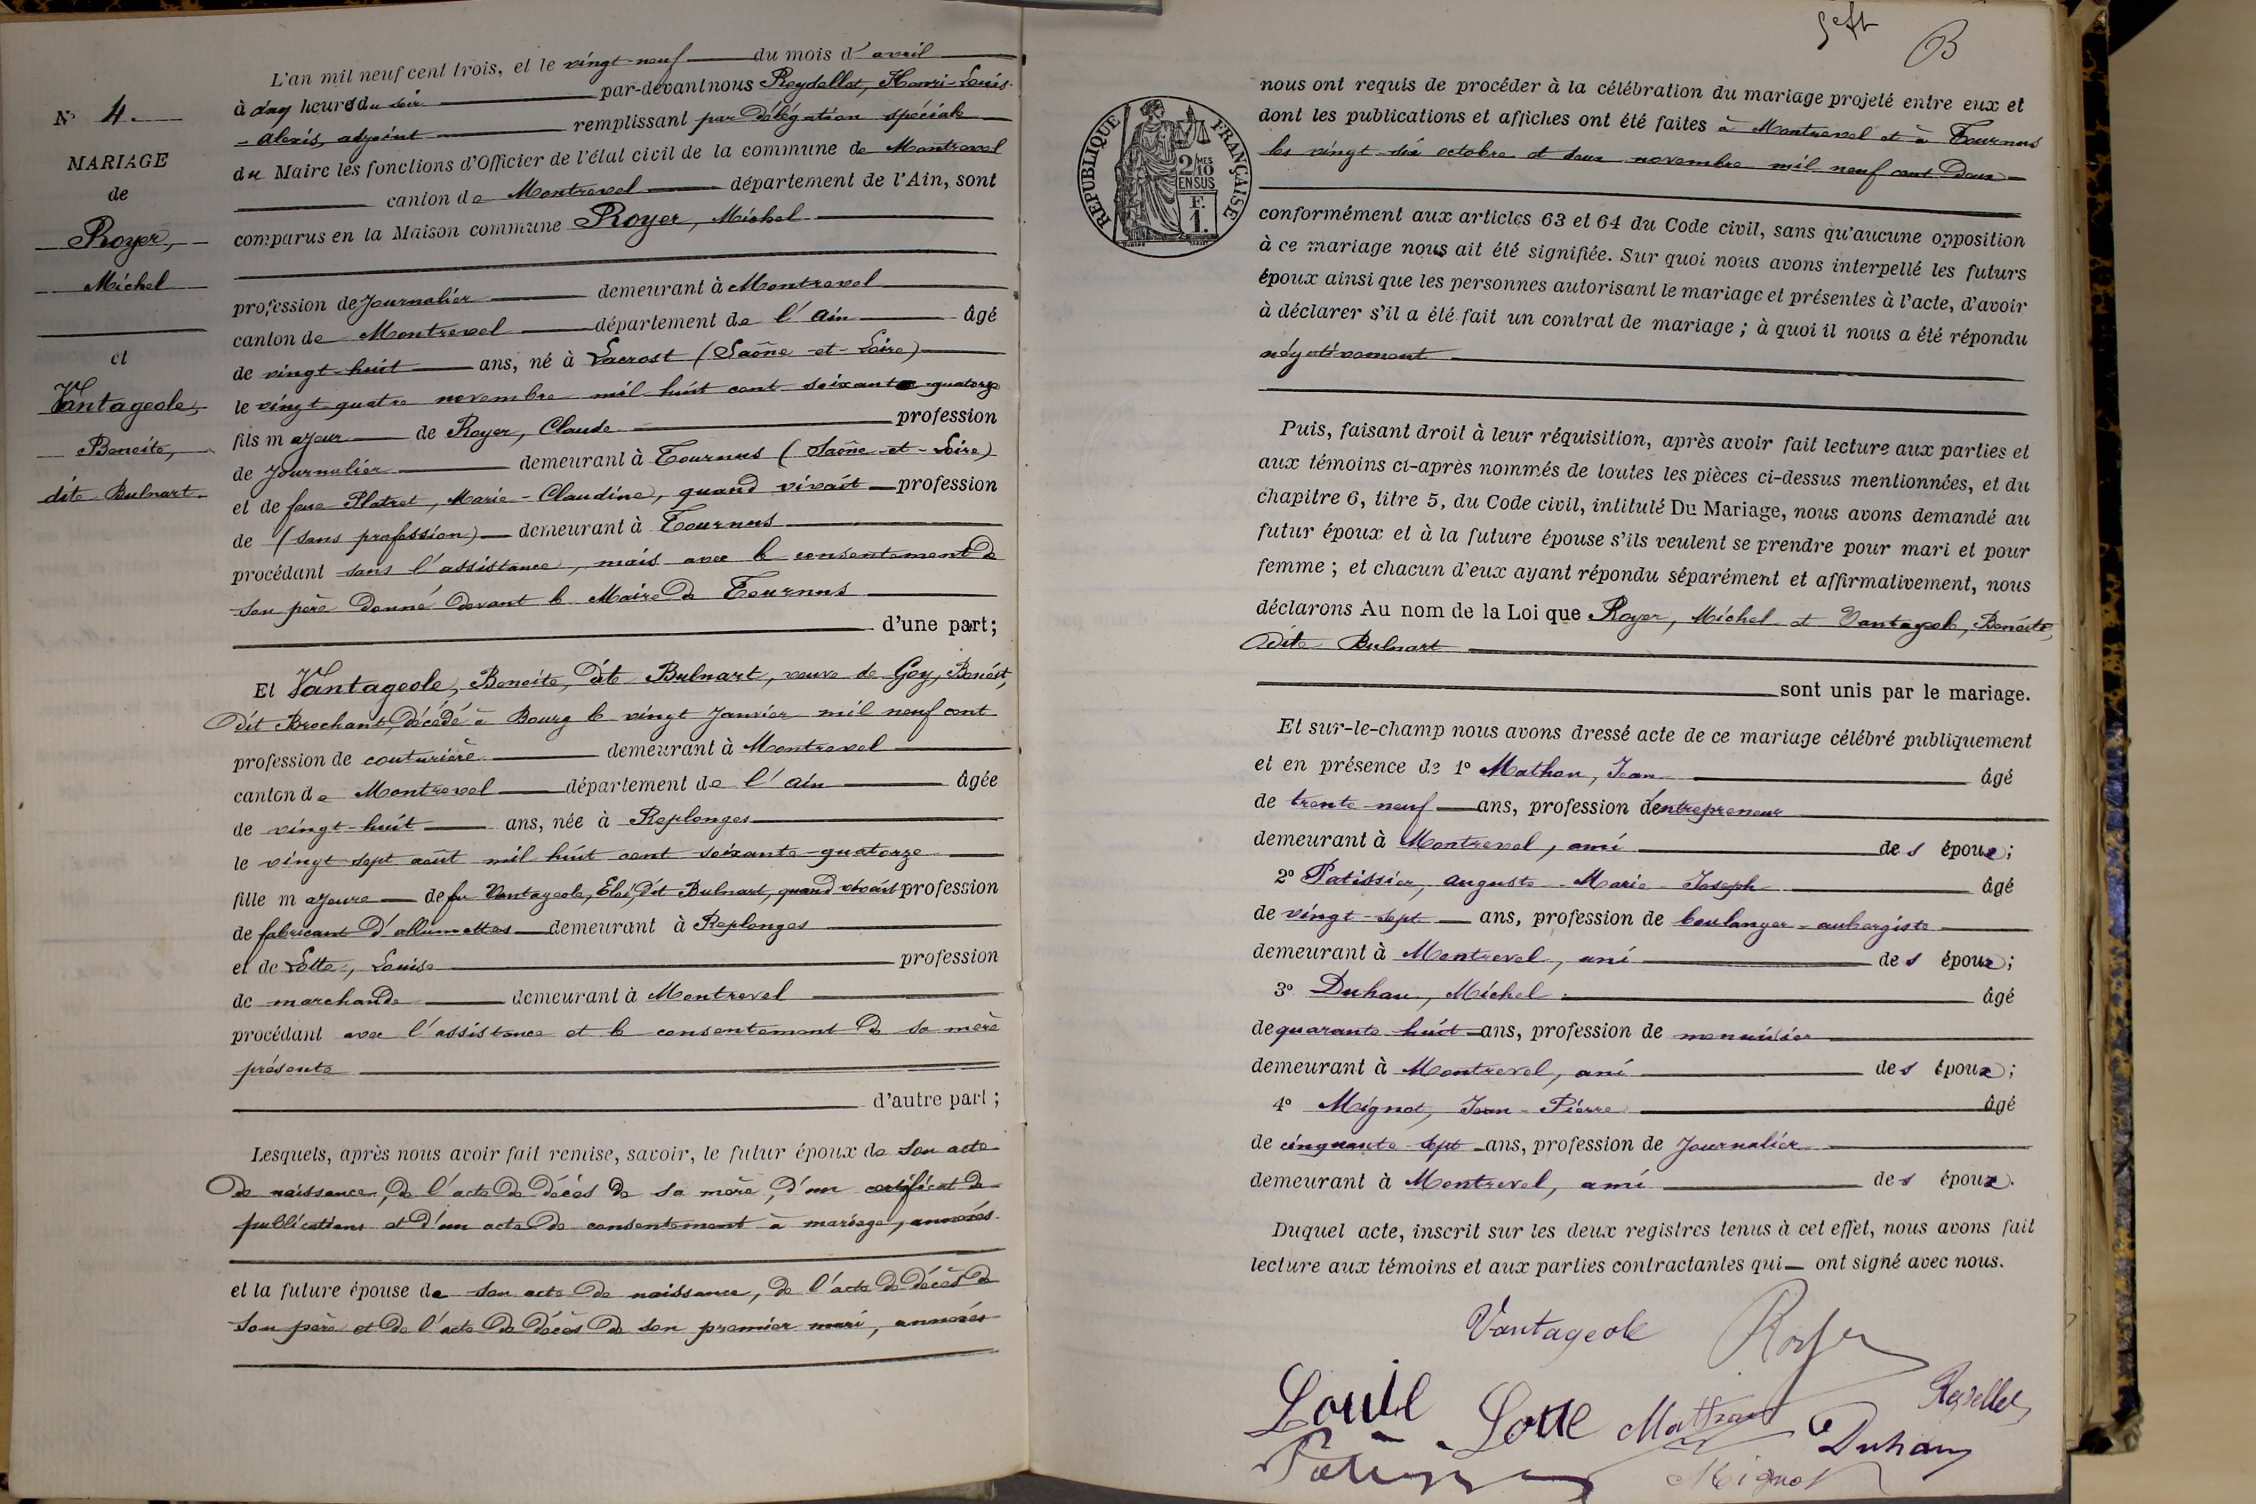 N° 4.
MARIAGE
de
Royer,
Michel
et
Vantageole,
Benoite,
dite Bulnart.
L'an mil neuf cent trois, et le vingt-neuf du mois d'avril
à cinq heures du soir par-devant nous Reydellet, Henri-Louis-
-Alexis, adjoint remplissant par délégation spéciale
du Maire les fonctions d'Officier de l'état civil de la commune de Montrevel
canton de Montrevel département de l'Ain, sont
comparus en la Maison commune Royer, Michel
profession de Journalier demeurant à Montrevel
canton de Montrevel département de l'Ain âgé
de vingt-huit ans, né à Lacrost (Saône-et-Loire)
le vingt-quatre novembre mil huit cent soixante quatorze
fils majeur de Royer, Claude profession
de Journalier demeurant à Tournus (Saône-et-Loire)
et de feue Platret, Marie-Claudine, quand vivait profession
de (sans profession) demeurant à Tournus
procédant sans l'assistance, mais avec le consentement de
son père donné devant le Maire de Tournus
d'une part;
Et Vantageole, Benoite, dite Bulnart, veuve de Goy, Benoît,
dit Brochant, décédé à Bourg le vingt Janvier mil neuf cent
profession de couturière demeurant à Montrevel
canton de Montrevel département de l'Ain âgée
de vingt-huit ans, née à Replonges
le vingt-sept août mil huit cent soixante-quatorze
fille majeure de feu Vantageole, Eloi, dit Bulnart, quand vivait profession
de fabricant d'allumettes demeurant à Replonges
et de Lotte, Louise profession
de marchande demeurant à Montrevel
procédant avec l'assistance et le consentement de sa mère
présente
d'autre part;
Lesquels, après nous avoir fait remise, savoir, le futur époux de son acte
de naissance, de l'acte de décès de sa mère, d'un certificat de
publications et d'un acte de consentement à mariage, annexés
et la future épouse de son acte de naissance, de l'acte de décès de
son père et de l'acte de décès de son premier mari, annexés
RÉPUBLIQUE FRANÇAISE
2 MES
10
EN SUS
F.
1.
nous ont requis de procéder à la célébration du mariage projeté entre eux et
dont les publications et affiches ont été faites à Montrevel et à Tournus
les vingt-six octobre et deux novembre mil neuf cent deux
conformément aux articles 63 et 64 du Code civil, sans qu'aucune opposition
à ce mariage nous ait été signifiée. Sur quoi nous avons interpellé les futurs
époux ainsi que les personnes autorisant le mariage et présentes à l'acte, d'avoir
à déclarer s'il a été fait un contrat de mariage; à quoi il nous a été répondu
négativement
Puis, faisant droit à leur réquisition, après avoir fait lecture aux parties et
aux témoins ci-après nommés de toutes les pièces ci-dessus mentionnées, et du
chapitre 6, titre 5, du Code civil, intitulé Du Mariage, nous avons demandé au
futur époux et à la future épouse s'ils veulent se prendre pour mari et pour
femme; et chacun d'eux ayant répondu séparément et affirmativement, nous
déclarons Au nom de la Loi que Royer, Michel et Vantageole, Benoite,
dite Bulnart
sont unis par le mariage.
Et sur-le-champ nous avons dressé acte de ce mariage célébré publiquement
et en présence de 1° Mathon, Jean âgé
de trente-neuf ans, profession d'entrepreneur
demeurant à Montrevel, ami des époux;
2° Patissier, Auguste-Marie-Joseph âgé
de vingt-sept ans, profession de boulanger-aubergiste
demeurant à Montrevel, ami des époux;
3° Duhau, Michel âgé
de quarante-huit ans, profession de menuisier
demeurant à Montrevel, ami des époux;
4° Mignot, Jean-Pierre âgé
de cinquante-sept ans, profession de Journalier
demeurant à Montrevel, ami des époux.
Duquel acte, inscrit sur les deux registres tenus à cet effet, nous avons fait
lecture aux témoins et aux parties contractantes qui ont signé avec nous.
Vantageole Royer
Louise Lotte Mathon Duhau Reydellet
Mignot